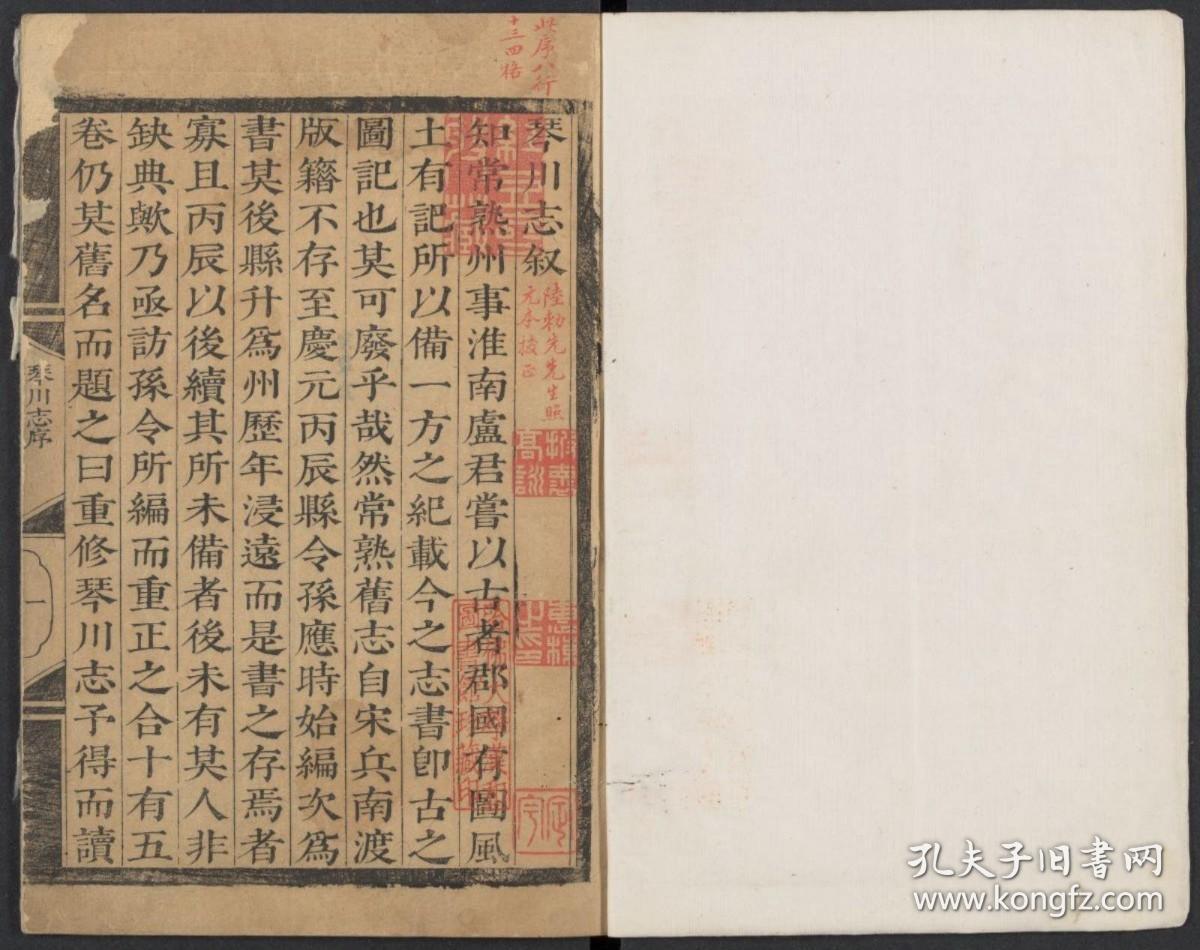 此序八行
十三四格
琴川志叙
陸勑先先生照
元本挍正
知常熟州事淮南盧君嘗以古者郡國有圖風
土有記所以備一方之紀載今之志書卽古之
圖記也其可廢乎哉然常熟舊志自宋兵南渡
版籍不存至慶元丙辰縣令孫應時始編次爲
書其後縣升爲州歷年浸遠而是書之存焉者
寡且丙辰以後續其所未備者後未有其人非
缺典歟乃亟訪孫令所編而重正之合十有五
卷仍其舊名而題之曰重修琴川志予得而讀
琴川志序
一
惠棟
之印
定宇
孔夫子旧书网
www.kongfz.com